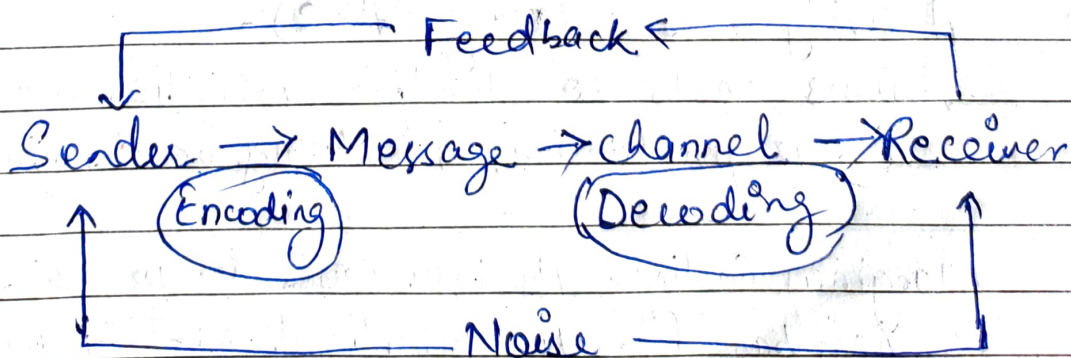 Feedback
Sender → Message → channel → Receiver
Encoding Decoding
Noise